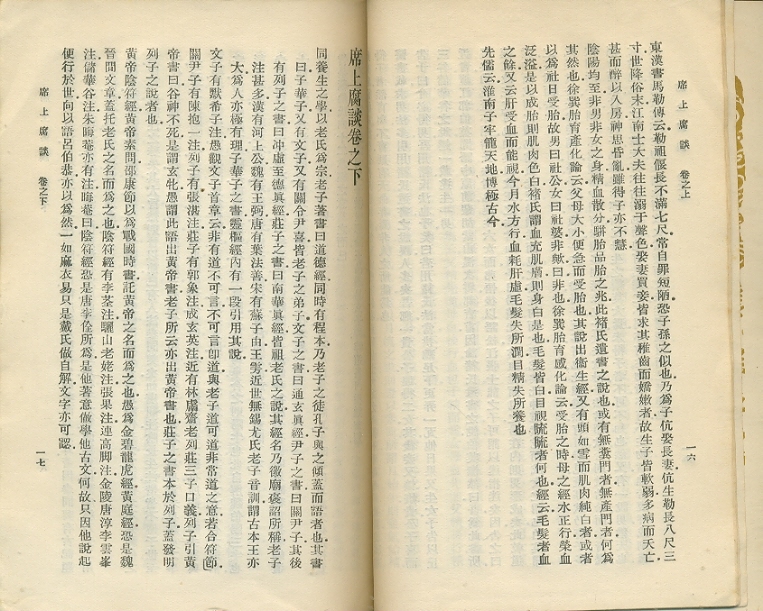 席上腐談 卷之上
一六
東漢書馬勒傳云勒祖偃長不滿七尺常自罪短陋恐子孫之似也乃爲子伉娶長妻伉生勒長八尺三
寸世降俗末江南士大夫往往溺于聲色娶妻買妾皆求其稚齒而嬌嫩者故生子皆軟弱多病而夭亡
甚而醉以入房神思昏亂雖得子亦不慧
陰陽均至非男非女之身精血散分駢胎品胎之兆此褚氏遺書之說也或有無糞門者無產門者何爲
其然也徐巽胎育產化論云父母大小便急而受胎也其說出衞生經又有頭如雪而肌肉純白者或者
以爲社日受胎故男曰社公女曰社婆非歟曰非也徐巽胎育感化論云受胎之時母之經水正行榮血
泛溢是以成胎則肌肉色白褚氏謂血充肌膚則身白是也毛髮皆白目視䀮䀮者何也經云毛髮者血
之餘又云肝受血而能視今月水方行血耗肝虛毛髮失所潤目精失所養也
先儒云淮南子牢籠天地博極古今
席上腐談卷之下
同養生之學以老氏爲宗老子著書曰道德經同時有程本乃老子之徒孔子與之傾蓋而語者也其書
曰子華子又有文子又有關令尹喜皆老子之弟子文子之書曰通玄眞經尹子之書曰關尹子其後
有列子之書曰冲虛至德眞經莊子之書曰南華眞經皆祖老氏之說其經名乃徽廟褒詔所稱老子
注甚多漢有河上公魏有王弼唐有葉法善宋有蘇子由王雱近世無錫尤氏老子音訓謂古本王亦
大爲人亦極有理子華子之書靈樞經內有一段引用其說
文子有默希子注愚觀文子首章云非有道不可言不可言卽道與老子道可道非常道之意若合符節
關尹子有陳抱一注列子有張湛注莊子有郭象注成玄英注近有林鬳齋老列莊三子口義列子引黃
帝書曰谷神不死是謂玄牝愚謂此語出黃帝書老子所云亦出黃帝書也莊子之書本於列子蓋發明
列子之說者也
黃帝陰符經黃帝素問邵康節以爲戰國時書託黃帝之名而爲之也愚爲金碧龍虎經黃庭經恐是魏
晉間文章蓋托老氏之名而爲之也陰符經有李荃注驪山老姥注張果注連高腳注金陵唐淳李雲峯
注儲華谷注朱晦菴亦有注晦菴曰陰符經恐是唐李佺所爲是他著意做學他古文何故只因他說起
便行於世向以語呂伯恭亦以爲然一如麻衣易只是戴氏做自解文字亦可認
席上腐談 卷之下
一七